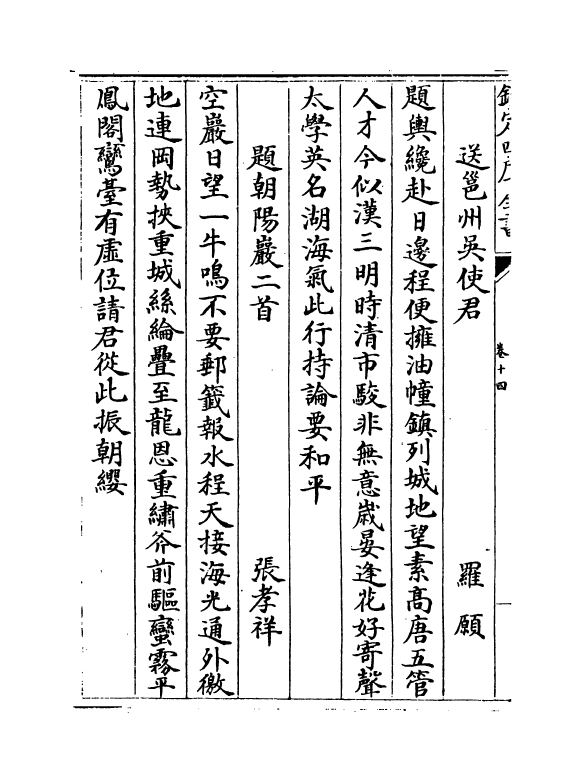 欽定四庫全書
卷十四
送邕州吳使君
羅願
題輿纔赴日邊程便擁油幢鎮列城地望素高唐五管
人才今似漢三明時清市駿非無意歲晏逢花好寄聲
太學英名湖海氣此行持論要和平
題朝陽巖二首
張孝祥
空巖日望一牛鳴不要郵籤報水程天接海光通外徼
地連岡勢挾重城絲綸疊至龍恩重繡斧前驅蠻霧平
鳳閣鸞臺有虛位請君從此振朝纓